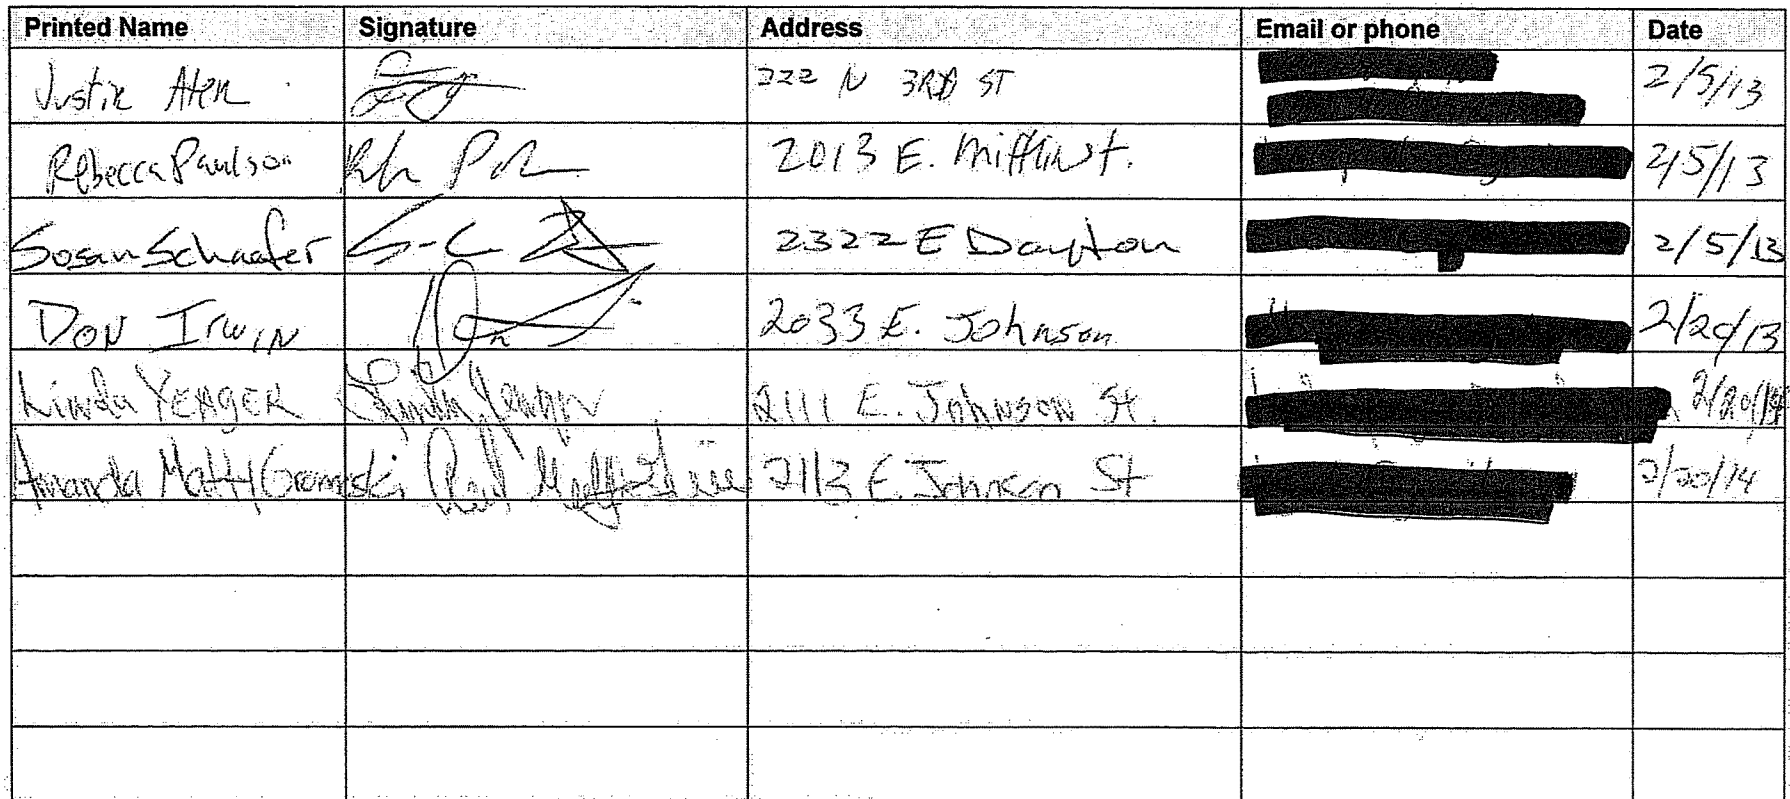 Printed Name Signature Address Email or phone Date
Justin Aten 222 N 3RD ST 2/5/13
Rebecca Paulson 2013 E. Mifflin St. 2/5/13
Susan Schaefer 2322 E Dayton 2/5/13
Don Irwin 2033 E. Johnson 2/20/13
Linda YEAGER Linda Yeager 2111 E. Johnson St. 2/20/14
Amanda 2113 E. Johnson St 2/20/14